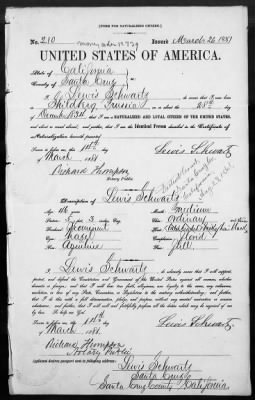 [FORM FOR NATURALIZED CITIZEN.]
No. 210
Issued March 26 1881
UNITED STATES OF AMERICA.
State of California
County of Santa Cruz
I, Lewis Schwartz
Prussia, on or about the 28th day
of December 1834 that I am a NATURALIZED AND LOYAL CITIZEN OF THE UNITED STATES,
and about to travel abroad; and further, that I am the identical Person described in the Certificate of
Naturalization herewith presented.
Sworn to before me this 14th
of March 1881
Lewis Schwartz
Richard Thompson
Notary Public
Description of Lewis Schwartz
Age: 46 years
Stature: 5 feet 3 inches, Eng.
Forehead: Prominent
Eyes: hazel
Nose: Aquiline
Mouth: medium
Chin: ordinary
Hair:
Complexion: Blond
Face: full
I, Lewis Schwartz, do solemnly swear that I will support, protect,
and defend the Constitution and Government of the United States against all enemies, whether domestic
or foreign; and that I will bear true faith, allegiance, and loyalty to the same, any ordinance,
resolution or law of any State, Convention, or Legislature to the contrary notwithstanding; and further,
that I do this with a full determination, pledge, and purpose, without any mental reservation or evasion
whatsoever; and further, that I will well and faithfully perform all the duties which may be required of me
by law. So help me God.
Sworn to before me this 14th
of March 1881
Lewis Schwartz
Richard Thompson
Notary Public
Applicant desires passport sent to following address:
Lewis Schwartz
Santa Cruz
Santa Cruz County California